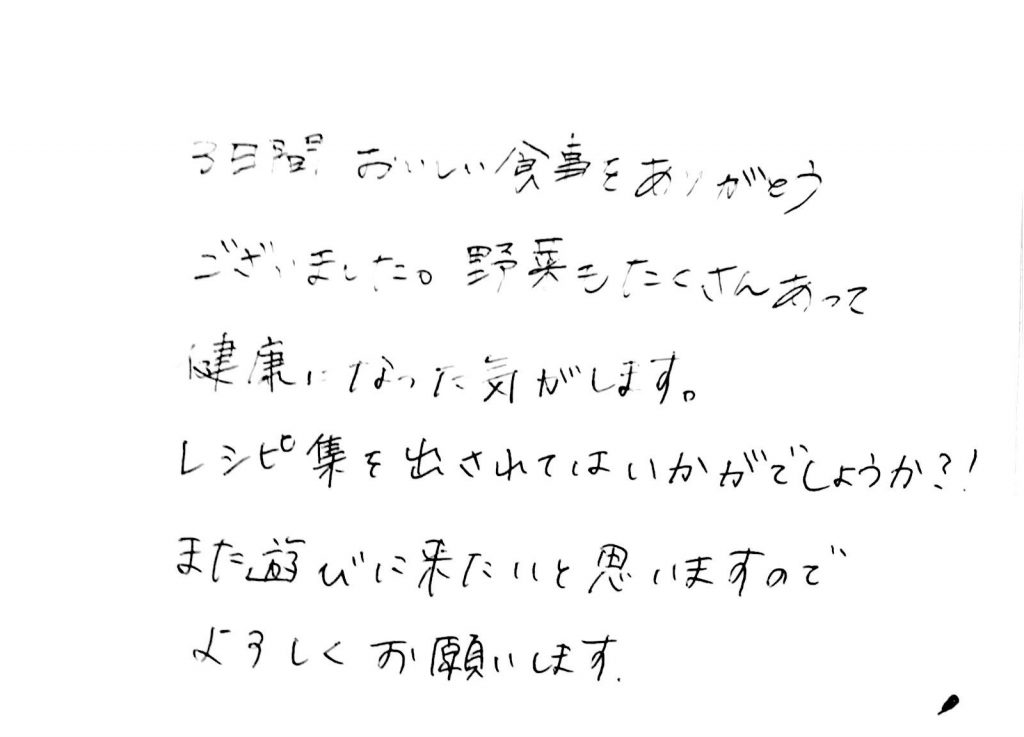 3日間 おいしい食事をありがとう
ございました。野菜もたくさんあって
健康になった気がします。
レシピ集を出されてはいかがでしょうか?!
また遊びに来たいと思いますので
よろしくお願いします.